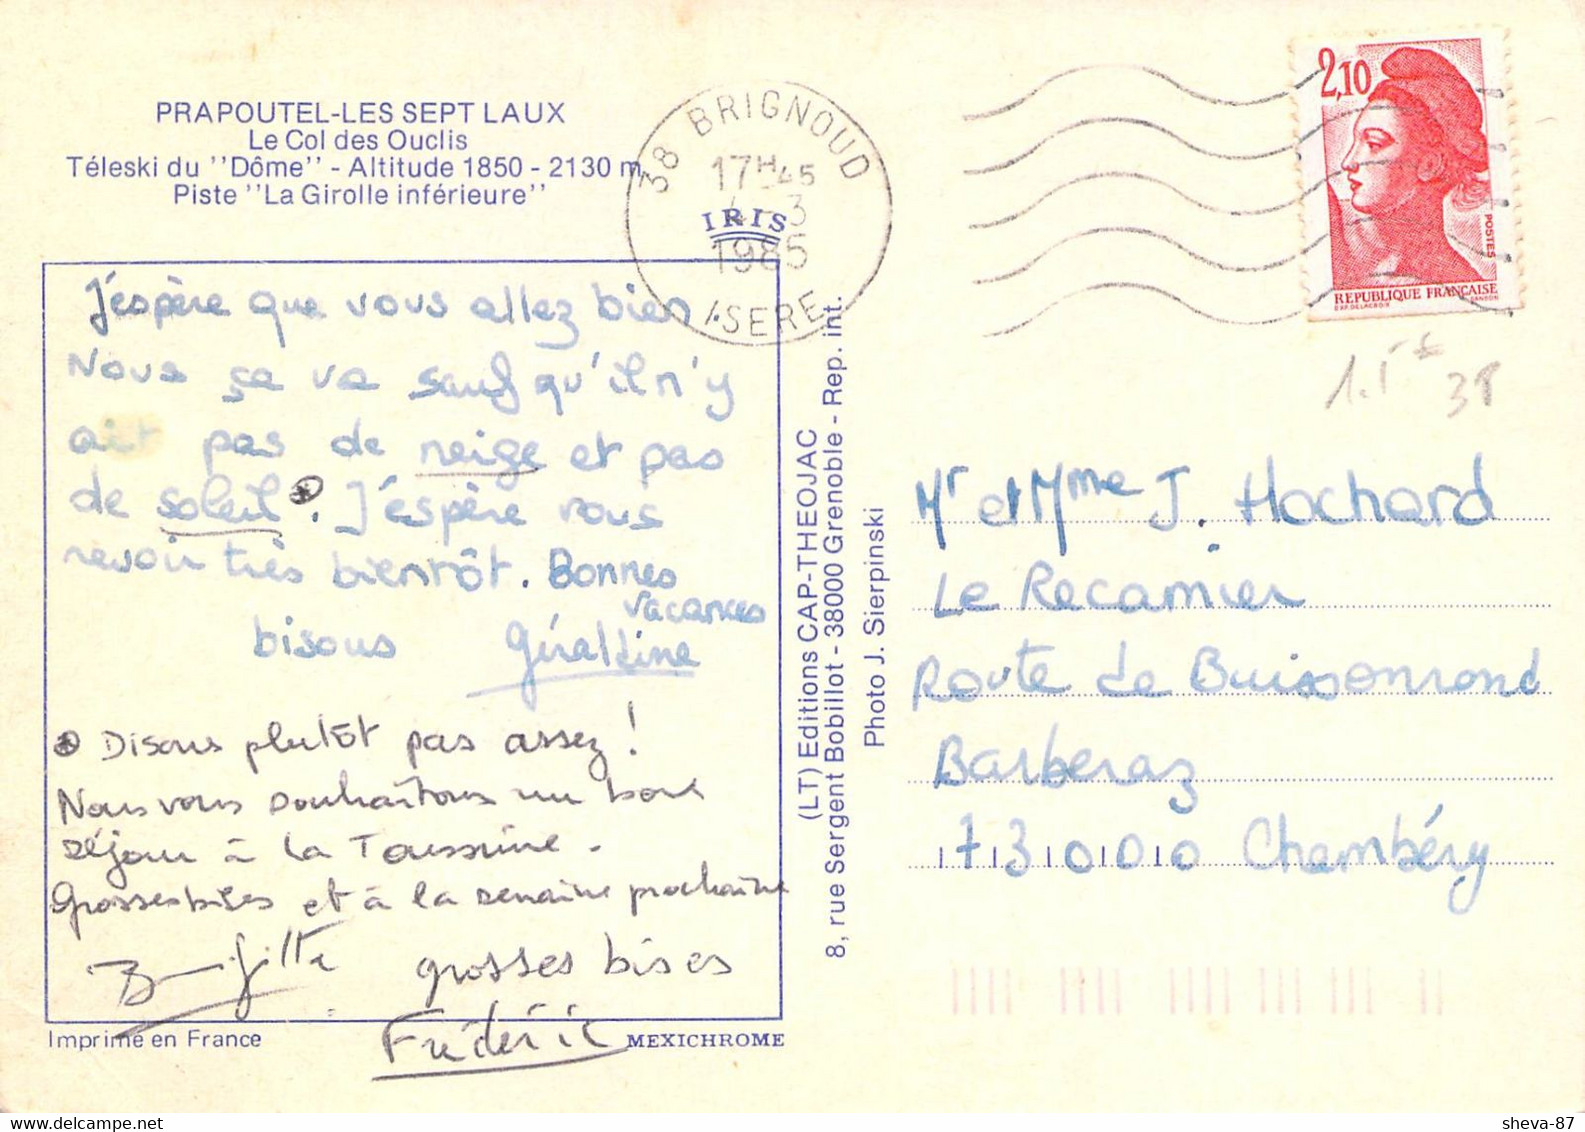 PRAPOUTEL-LES SEPT LAUX
Le Col des Ouclis
Téleski du ''Dôme'' - Altitude 1850 - 2130 m
Piste ''La Girolle inférieure''
38 BRIGNOUD
17H45
3
1985
ISERE
IRIS
2,10
POSTES
REPUBLIQUE FRANÇAISE
J'espère que vous allez bien.
Nous ça va sauf qu'il n'y
ait pas de neige et pas
de soleil. J'espère vous
revoir très bientôt. Bonnes
vacances
bisous Géraldine
Disons plutôt pas assez !
Nous vous souhaitons un bon
séjour à la Toussuire.
Grosses bises et à la semaine prochaine
Brigitte grosses bises
Frédéric
Imprimé en France
MEXICHROME
(LT) Editions CAP-THEOJAC
8, rue Sergent Bobillot - 38000 Grenoble - Rep. int.
Photo J. Sierpinski
38
Mr et Mme J. Hochard
Le Recamier
Route de Buissonrond
Barberaz
73000 Chambéry
sheva-87